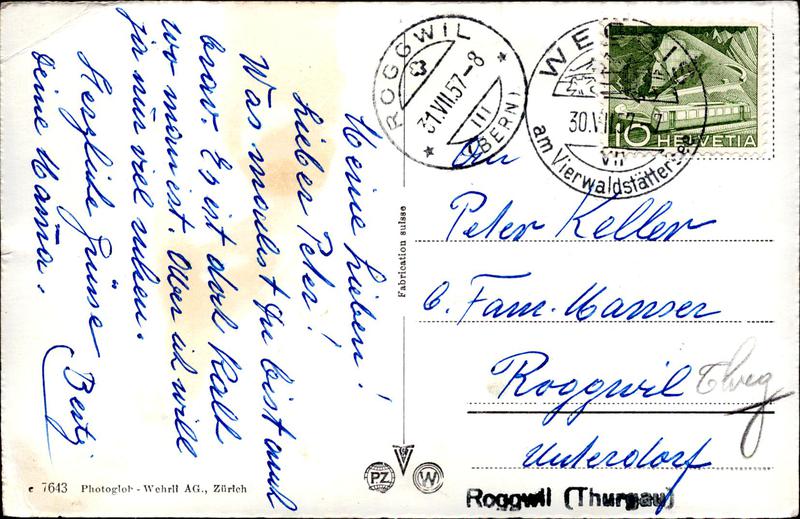 Meine Lieben!
Lieber Peter!
Was machst Du bist auch
brav. Es ist doch kalt
wo man ist. Aber ich will
ja nur viel ruhen.
Herzliche Grüsse
Deine Mama.
ROGGWIL
31.VII.57-8
III
(BERN)
WEGGIS
30.VII.57
VII
am Vierwaldstättersee
10 HELVETIA
Peter Keller
b. Fam. Manser
Roggwil Thurg
Unterdorf
Roggwil (Thurgau)
Fabrication suisse
PZ
W
c 7643 Photoglob-Wehrli AG., Zürich